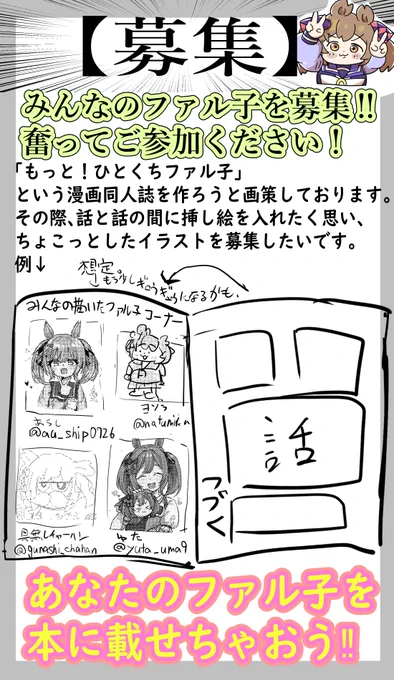 【募集】
みんなのファル子を募集!!
奮ってご参加ください！
「もっと！ひとくちファル子」
という漫画同人誌を作ろうと画策しております。
その際、話と話の間に挿し絵を入れたく思い、
ちょこっとしたイラストを募集したいです。
例↓
想定。
もう少しぎゅうぎゅうになるかも、
みんなの描いたファル子コーナー
あらし
@au_ship0726
ヨソラ
具無しチャーハン
@gunashi_chahan
ゆた
@yuta_uma9
話
つづく
あなたのファル子を
本に載せちゃおう!!